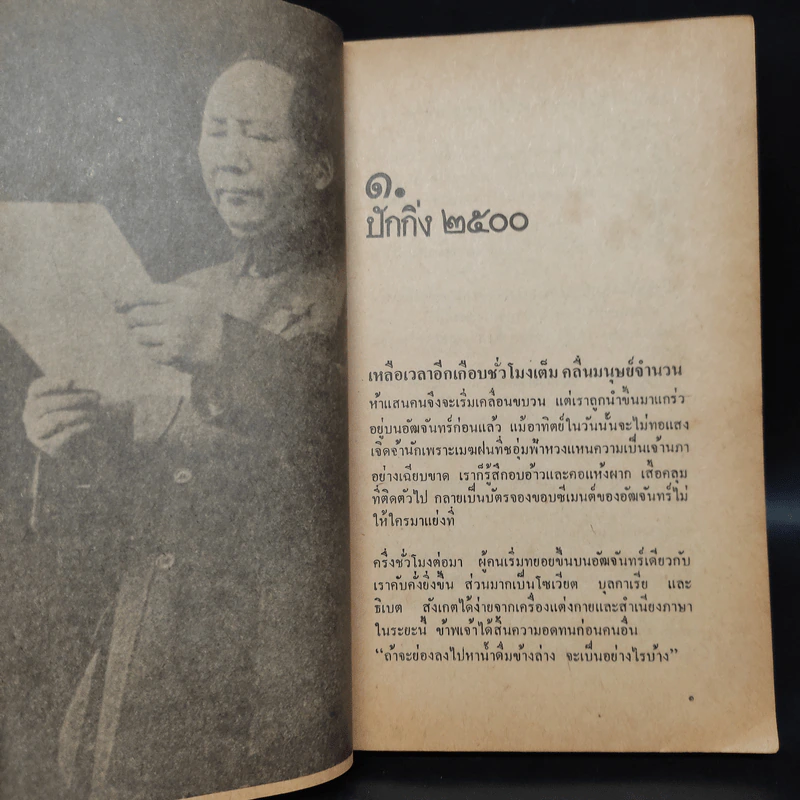 ๑.
ปักกิ่ง ๒๕๐๐
เหลือเวลาอีกเกือบชั่วโมงเต็ม คลื่นมนุษย์จำนวน
ห้าแสนคนจึงจะเริ่มเคลื่อนขบวน แต่เราถูกนำขึ้นมาแกร่ว
อยู่บนอัฒจันทร์ก่อนแล้ว แม้อาทิตย์ในวันนั้นจะไม่ทอแสง
เจิดจ้านักเพราะเมฆฝนที่ชอุ่มฟ้าหวงแหนความเป็นเจ้านภา
อย่างเฉียบขาด เราก็รู้สึกอบอ้าวและคอแห้งผาก เสื้อคลุม
ที่ติดตัวไป กลายเป็นบัตรจองขอบซีเมนต์ของอัฒจันทร์ไม่
ให้ใครมาแย่งที่
ครึ่งชั่วโมงต่อมา ผู้คนเริ่มทยอยขึ้นบนอัฒจันทร์เดียวกับ
เราคับคั่งยิ่งขึ้น ส่วนมากเป็นโซเวียต บุลกาเรีย และ
ธิเบต สังเกตได้ง่ายจากเครื่องแต่งกายและสำเนียงภาษา
ในระยะนี้ ข้าพเจ้าได้สิ้นความอดทนก่อนคนอื่น
“ถ้าจะย่องลงไปหาน้ำดื่มข้างล่าง จะเป็นอย่างไรบ้าง”
๑